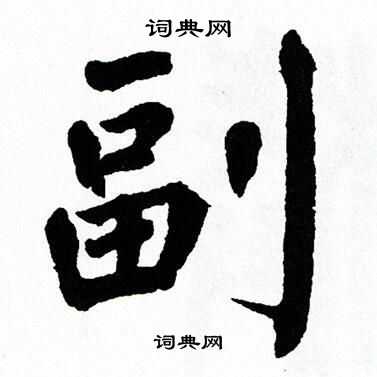 词典网
副
词典网